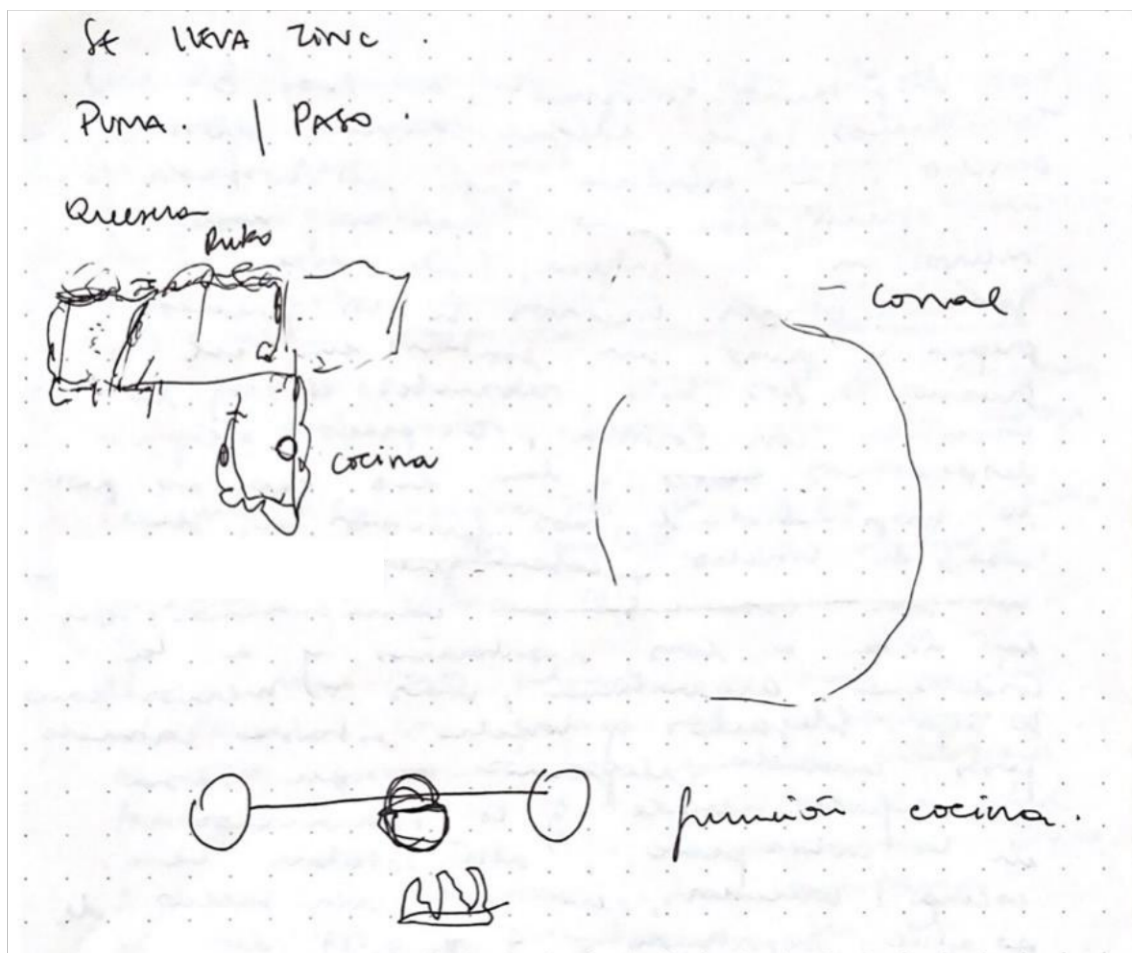 SE LLEVA ZINC.
PUMA. | PASO.
Quesera
Ruko
- corral
cocina
función cocina.